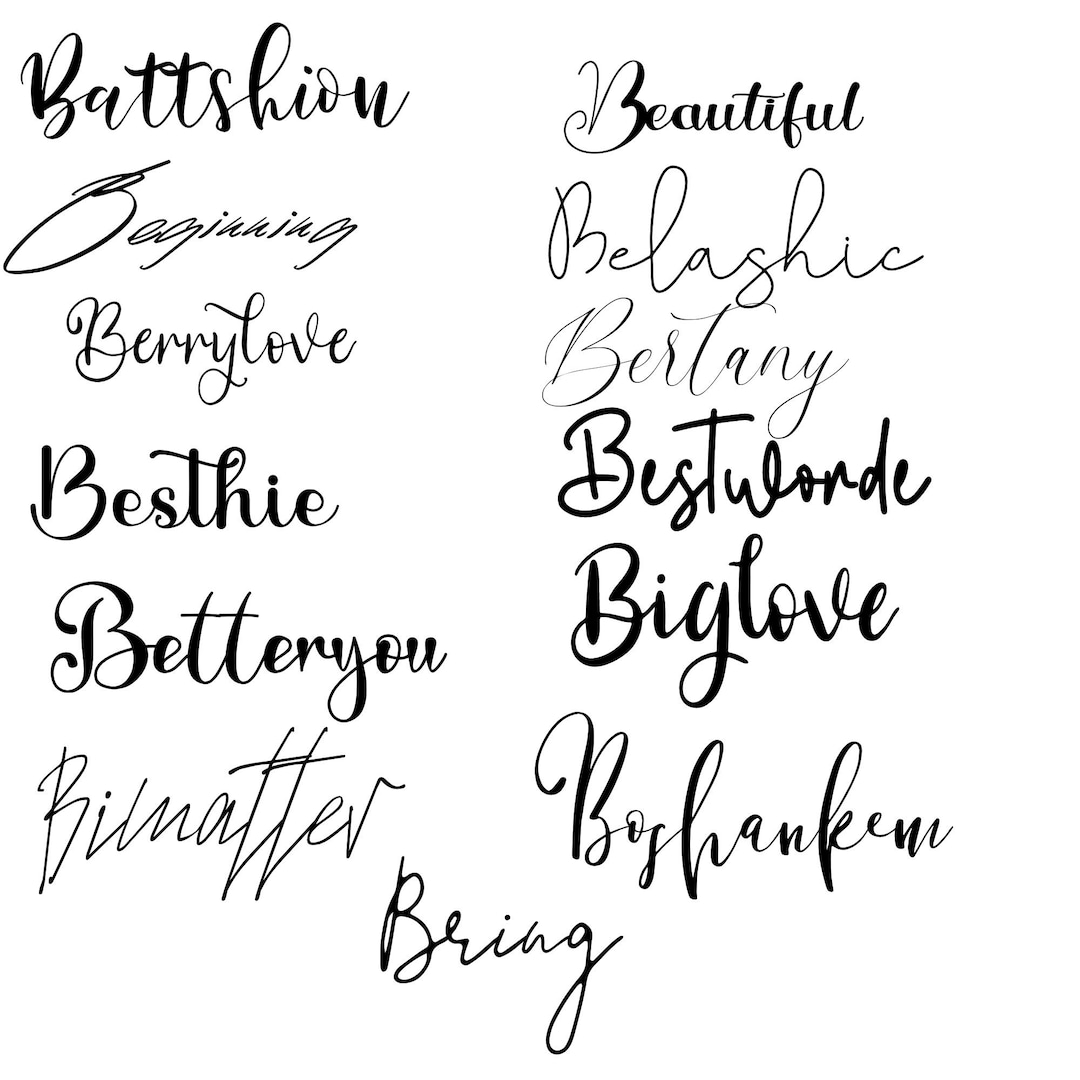 Battshion
Beautiful
Beginning
Belashic
Berrylove
Bertany
Besthie
Bestworde
Betteryou
Biglove
Bimatter
Boshankem
Bring